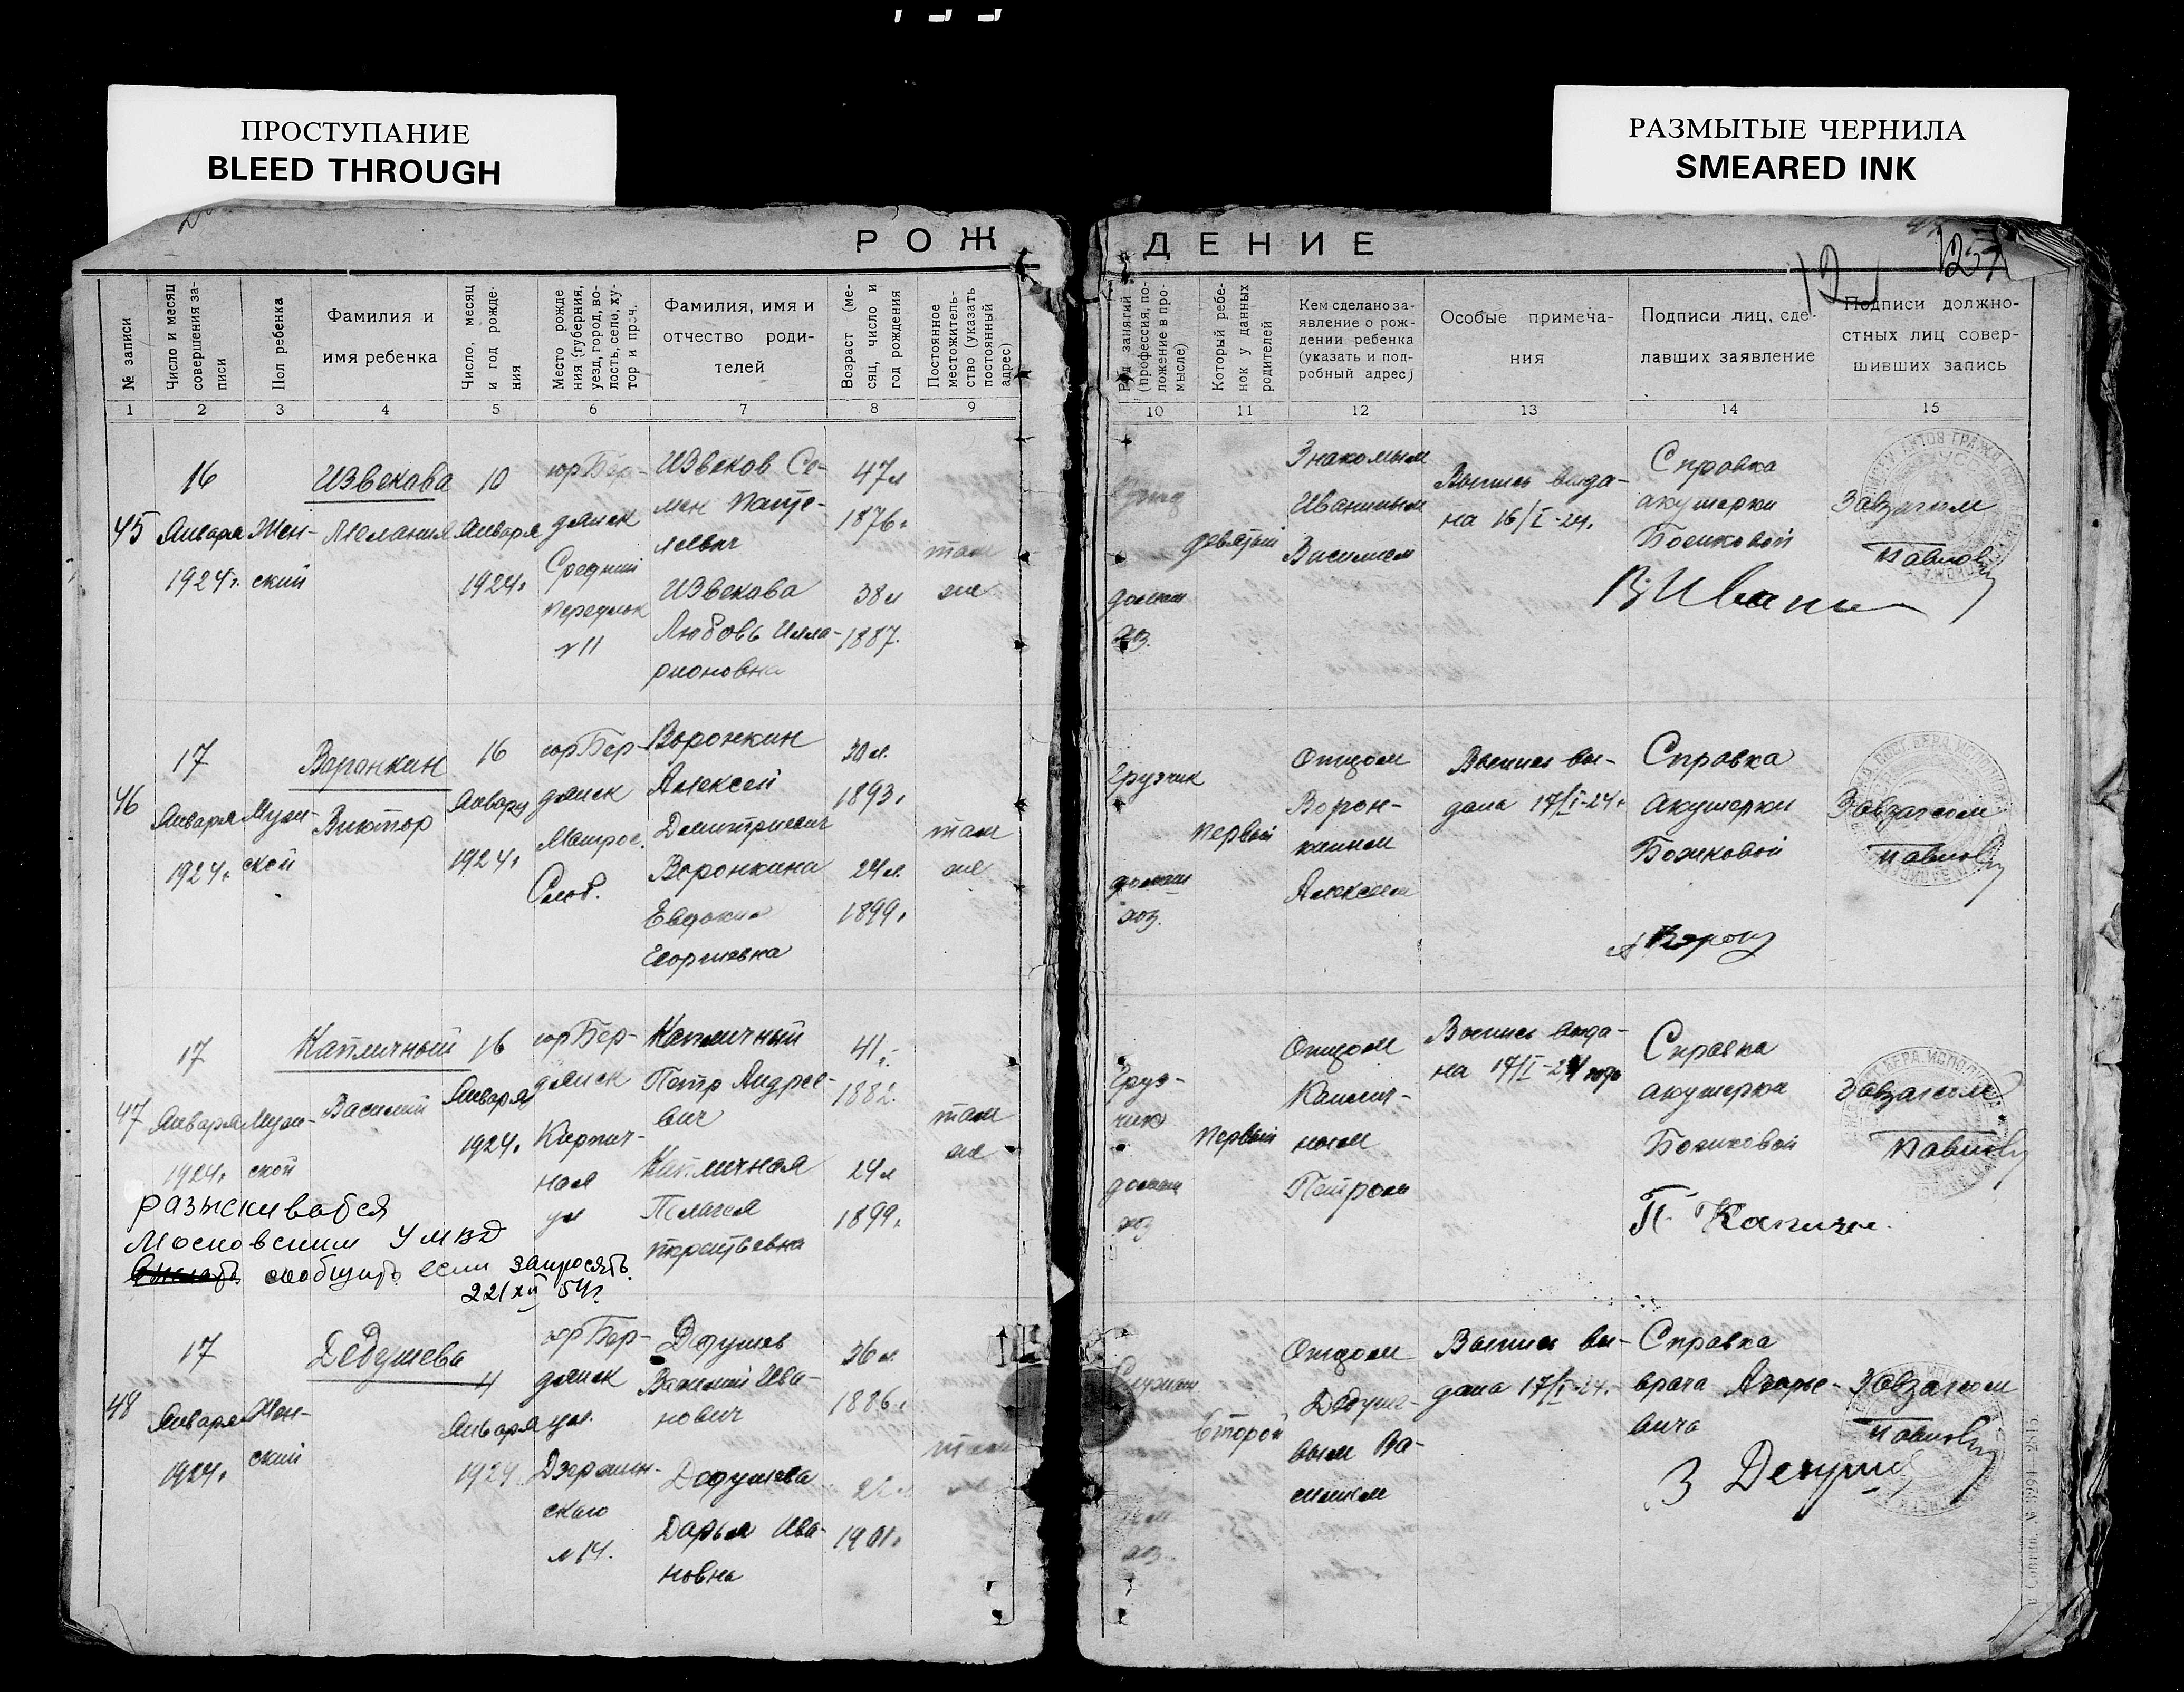 ПРОСТУПАНИЕ
BLEED THROUGH
РАЗМЫТЫЕ ЧЕРНИЛА
SMEARED INK
РОЖДЕНИЕ
12
№ записи
Число и месяц совершения записи
Пол ребенка
Фамилия и
имя ребенка
Число, месяц и год рождения
Место рождения (губерния, уезд, город, волость, село, хутор и проч.
Фамилия, имя и
отчество роди-
телей
Возраст (месяц, число и год рождения
Постоянное местожительство (указать постоянный адрес)
Род занятий (профессия, положение в промысле)
Который ребенок у данных родителей
Кем сделано за-
явление о рож-
дении ребенка
(указать и под-
робный адрес)
Особые примеча-
ния
Подписи лиц, сде-
лавших заявление
Подписи должно-
стных лиц совер-
шивших запись
1 2 3 4 5 6 7 8 9 10 11 12 13 14 15
45
16
Января
1924г.
Жен-
ский
Извекова
Мелания
10
Января
1924г.
гор Бер-
дянск
Средний
переулок
№11
Извеков Се-
мен Панте-
леевич
Извекова
Любовь Илла-
рионовна
47л
1876г
38л
1887.
там
же
домаш
хоз.
девятый
Знакомым
Иваниным
Василием
Выпись выда-
на 16/I-24г.
Справка
акушерки
Божковой
В. Иванин
Завзагсом
Павлов
46
17
Января
1924г.
Муж-
ской
Воронкин
Виктор
16
Января
1924г.
гор Бер-
дянск
Матрос.
Слоб.
Воронкин
Алексей
Дмитриевич
Воронкина
Евдокия
Георгиевна
30л.
1893г
24л.
1899г.
там
же
грузчик
домаш
хоз.
первый
Отцом
Ворон-
киным
Алексеем
Выпись вы-
дана 17/I-24г.
Справка
Акушерки
Божковой
А Ворон
Завзагсом
Павлов
47
17
Января
1924г.
Муж-
ской
Капличный
Василий
16
Января
1924г.
гор Бер-
дянск
Кирпич-
ная
ул
Капличный
Петр Андрее-
вич
Капличная
Пелагея
Терентьевна
41.-
1882.
24л
1899г.
там
же
Груз-
чик
домаш
хоз
первый
Отцом
Каплич-
ным
Петром
Выпись выда-
на 17/I-24 года
Справка
акушерки
Божковой
П Капличн.
Завзагсом
Павлов
разыскивается
Московским УМВД
сообщить если запросят.
22/XII 54г.
48
17
Января
1924г.
Жен-
ский
Дедушева
4
Января
1924
гор Бер-
дянск
ул.
Дзержин-
ского
№14.
Дедушев
Василий Ива-
нович
Дедушева
Дарья Ива-
новна
36л.
1886г.
1901г.
там
хоз.
второй
Отцом
Дедуше-
вым Ва-
силием
Выпись вы-
дана 17/I-24г.
Справка
врача Азарье-
вича
Завзагсом
Павлов